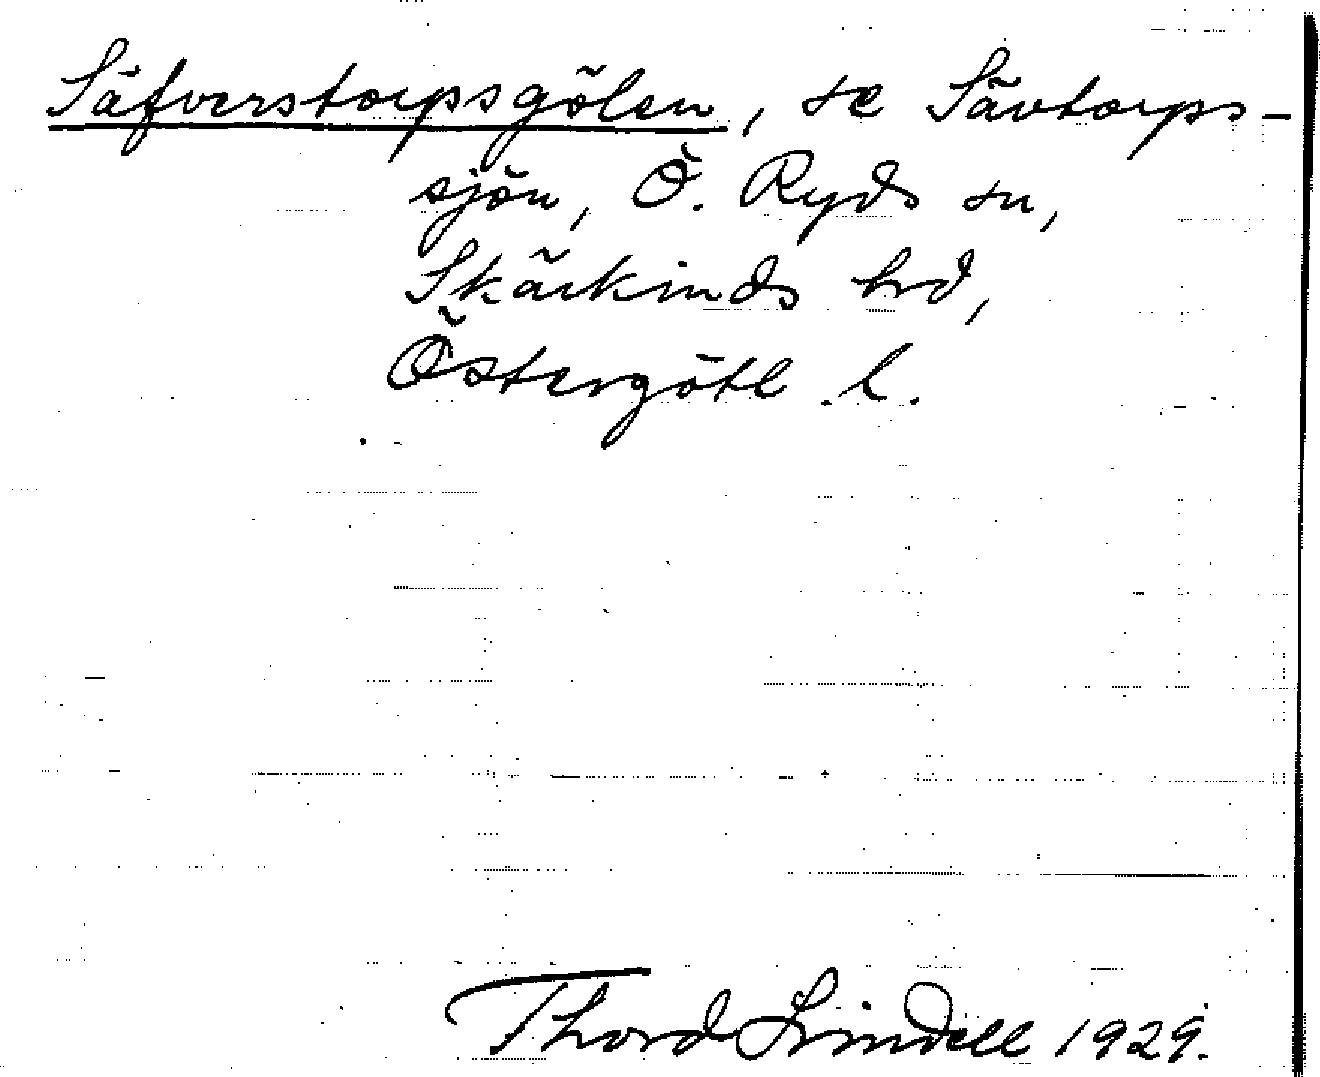 Säfverstorpsgölen, se Sävtorps-
sjön, Ö. Ryds sn,
Skärkinds hrd,
Östergötl. l.
Thord Lindell 1929.